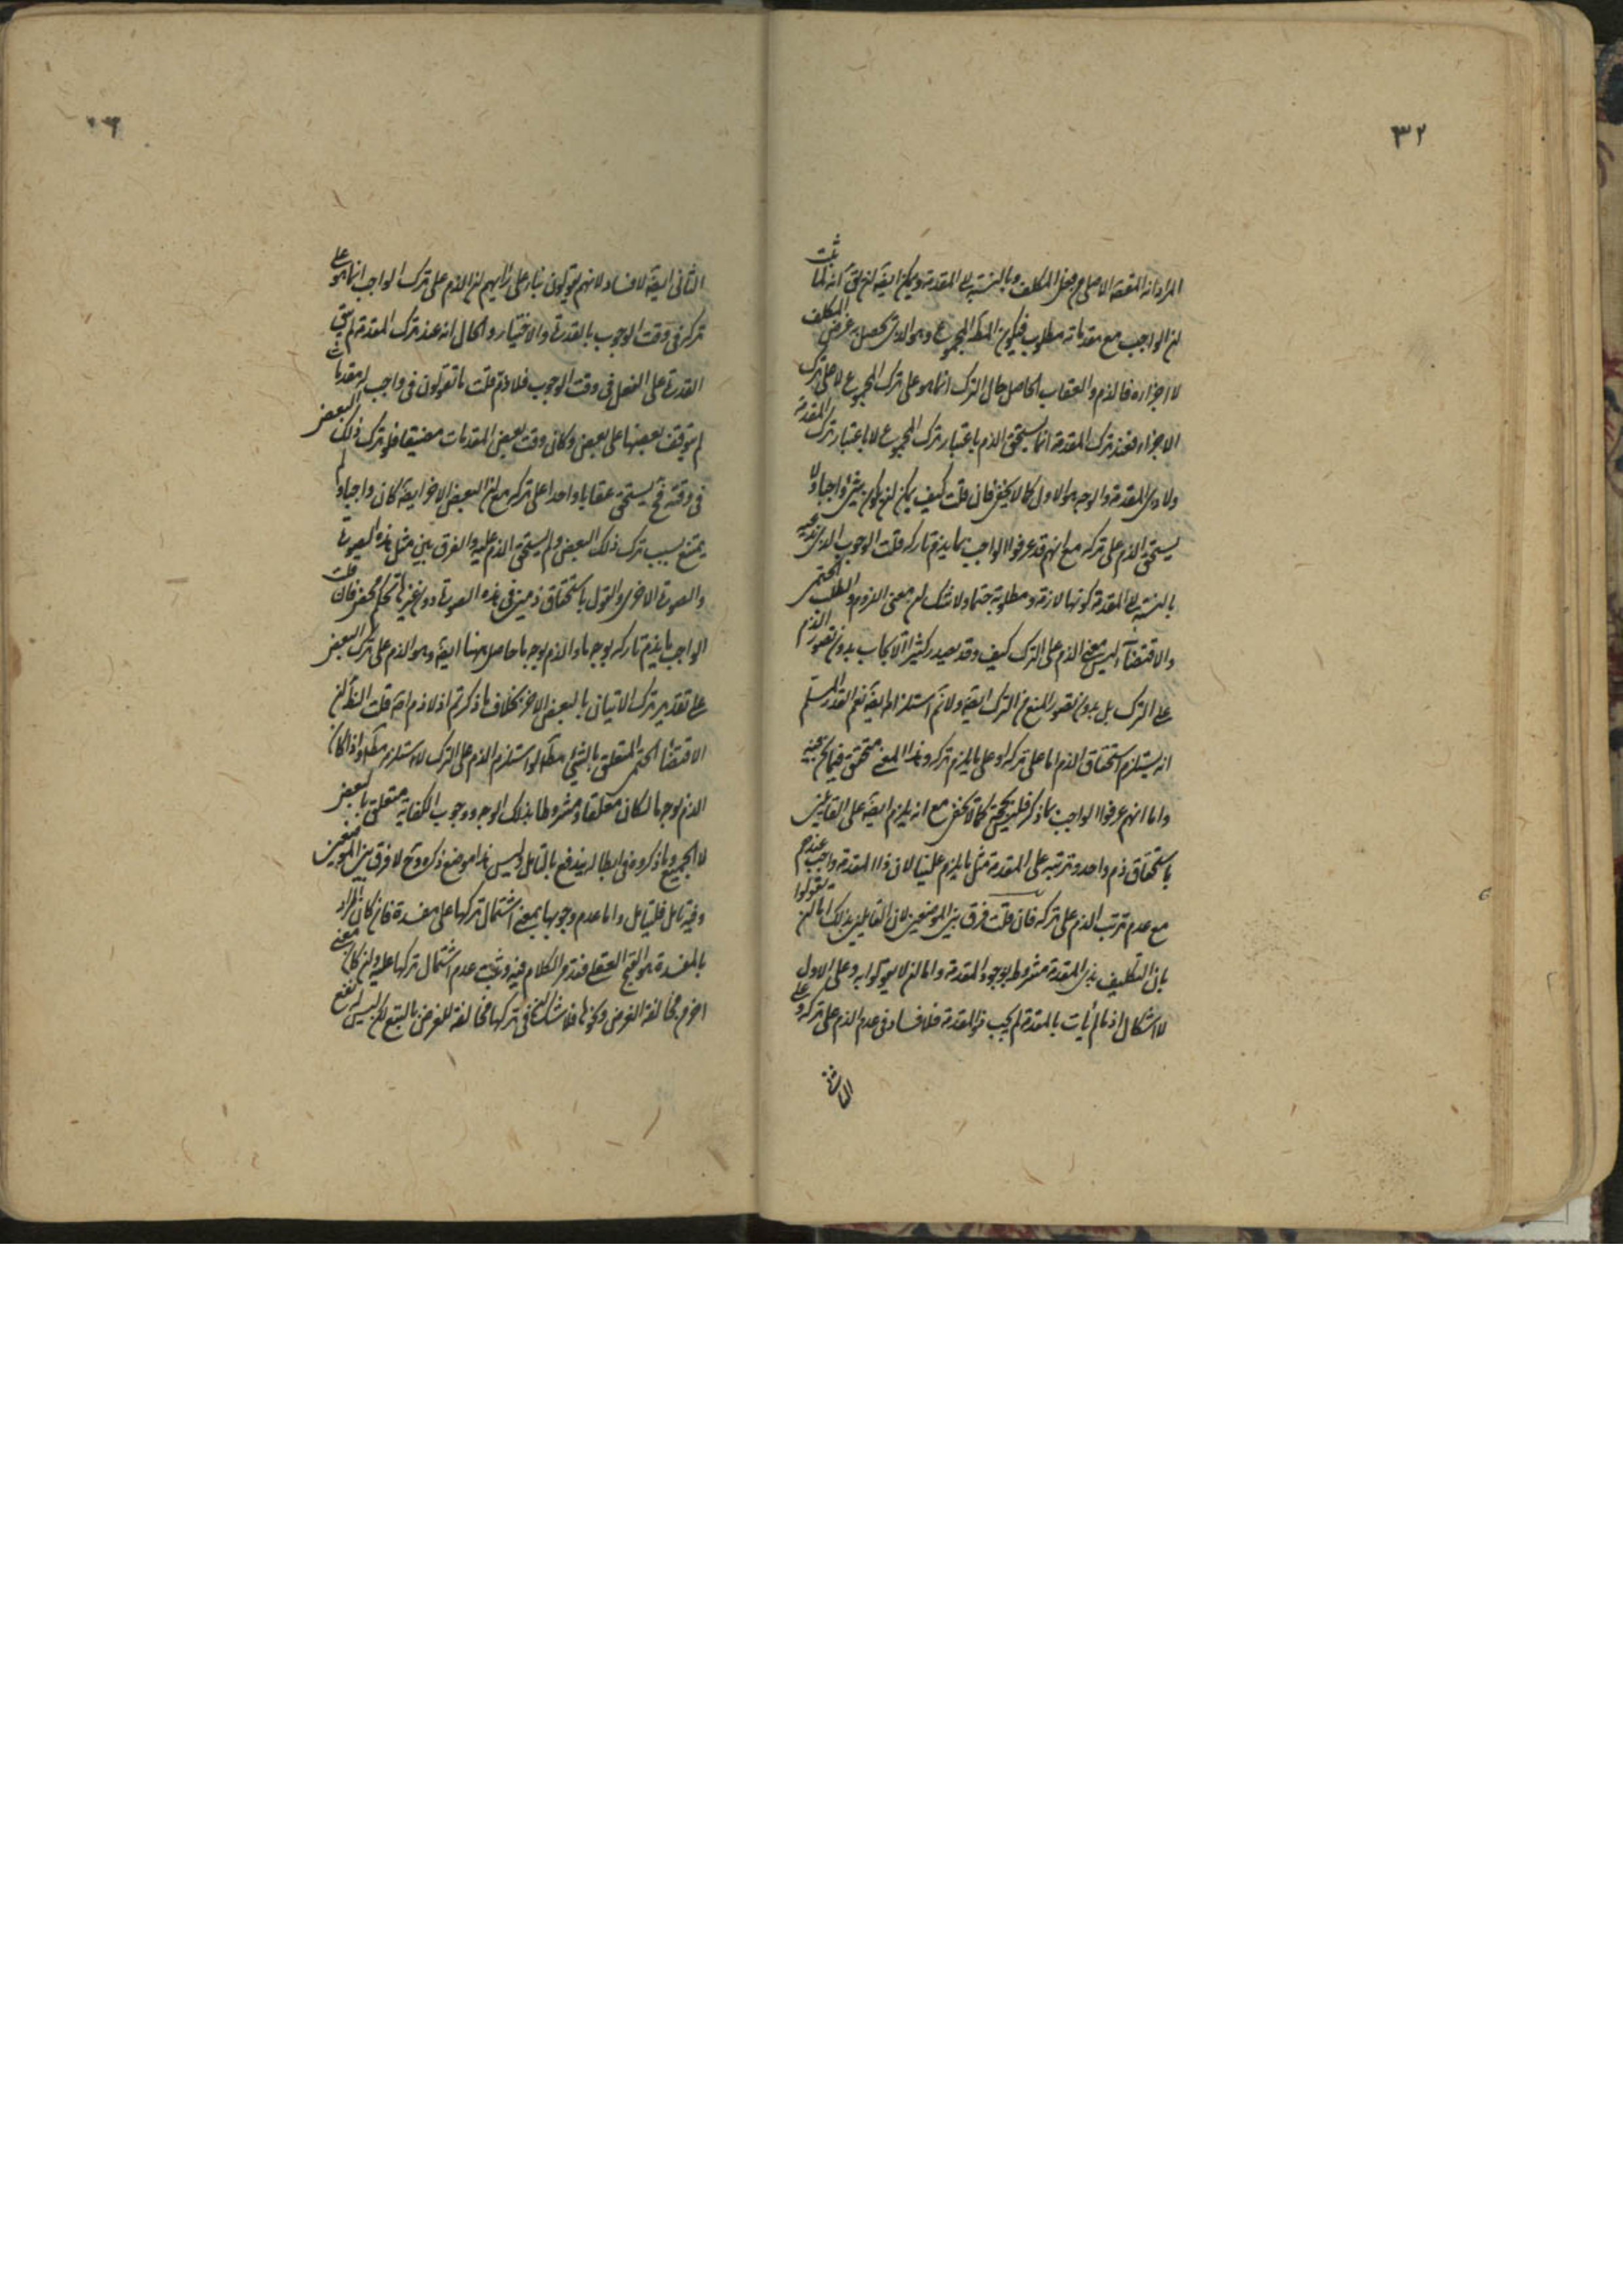 ٣٢
المراد انه المقصد الاصلى من فعل المكلف وبالنسبة الى المقدمة ويمكن ايضا ان يق انه لما ثبت
ان الواجب مع مقدماته مطلوب فيكون المط المجموع وهو الذى يحصل به غرض المكلف
لا اجزاءه فالذم والعقاب الحاصل حال الترك انما هو على ترك المجموع لا على ترك
الاجزاء فعند ترك المقدمة انما يستحق الذم باعتبار ترك المجموع لا باعتبار ترك المقدمة
ولا ذى المقدمة والوجه هو الاول كما لا يخفى فان قلت كيف يمكن ان يكون شئ واجبا ولا
يستحق الذم على تركه مع انهم قد عرفوا الواجب بما يذم تاركه قلت الوجوب الذى ندعيه
بالنسبة الى المقدمة كونها لازمة ومطلوبة حتما ولا شك ان معنى اللزوم والطلب الحتمى
والاقتضاء ليس معنى الذم على الترك كيف وقد يصدر كثيرا الايجاب بدون تصور الذم
على الترك بل بدون تصور المنع من الترك ايضا ولا نم استلزامه ايضا نعم القدر المسلم
انه يستلزم استحقاق الذم اما على تركه او على ما يلزم تركه وهذا المعنى متحقق فيما نحن فيه
واما انهم عرفوا الواجب بما ذكر فليس بحجة كما لا يخفى مع انه يلزم ايضا على القايلين
باستحقاق ذم واحد وترتبه على المقدمة مثل ما يلزم علينا لان ذا المقدمة واجب عندهم
مع عدم ترتب الذم على تركه فان قلت فرق بين الموضعين لان القايلين بذلك اما ان يقولوا
بان التكليف بذى المقدمة مشروط بوجود المقدمة واما ان لا يقولوا به وعلى الاول
لا اشكال اذ ما لم يأت بالمقدمة لم يجب ذو المقدمة فلا فساد فى عدم الذم على تركه وعلى
الثانى
١٦
الثانى ايضا لا فساد لانهم يقولون بناء على رأيهم ان الذم على ترك الواجب انما هو على
تركه فى وقت الوجوب بالقدرة والاختيار والحال انه عند ترك المقدمة لم يبق
القدرة على الفعل فى وقت الوجوب فلا ذم قلت ما تقولون فى واجب له مقدمات
لم يتوقف بعضها على بعض وكان وقت بعض المقدمات مضيقا فلو ترك ذلك البعض
فى وقته فح يستحق عقابا واحدا على تركه مع ان البعض الاخر ايضا كان واجبا ولم
يمتنع بسبب ترك ذلك البعض ولم يستحق الذم عليه والفرق بين مثل هذه الصورة
والصورة الاخرى والقول باستحقاق ذمين فى هذه الصورة دون غيرها تحكم محض فان قلت
الواجب ما يذم تاركه بوجه ما والذم بوجه ما حاصل ههنا ايضا وهو الذم على ترك البعض
على تقدير ترك الاتيان بالبعض الاخر بخلاف ما ذكرتم اذ لا ذم اصلا قلت الظ ان
الاقتضاء الحتمى المتعلق بالشئ مطلقا لو استلزم الذم على الترك لاستلزم مطلقا واذا كان
الذم بوجه ما لكان معلقا ومشروطا بذلك الوجه ووجوب الكفاية متعلق بالبعض
لا الجميع وما ذكروه فى ابطاله يندفع بالتامل وليس هذا موضع ذكره وح لا فرق بين الموضعين
وفيه تامل فليتامل واما عدم وجوبها بمعنى اشتمال تركها على مفسدة فان كان المراد
بالمفسدة هو القبح العقلى فقد مر الكلام فيه وثبت عدم اشتمال تركها عليه وان كان معنى
اخر من مخالفة الغرض ونحوها فلا شك ان فى تركها مخالفة للغرض بالتبع لكن ليس له نفع